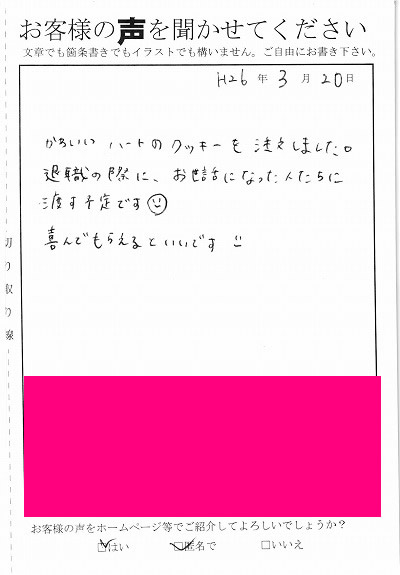 お客様の声を聞かせてください
文章でも箇条書きでもイラストでも構いません。ご自由にお書き下さい。
H26年3月20日
かわいい ハートのクッキーを注文しました。
退職の際に、お世話になった人たちに
渡す予定です
喜んでもらえるといいです
切り取り線
お客様の声をホームページ等でご紹介してよろしいでしょうか?
☑はい ☑匿名で □いいえ